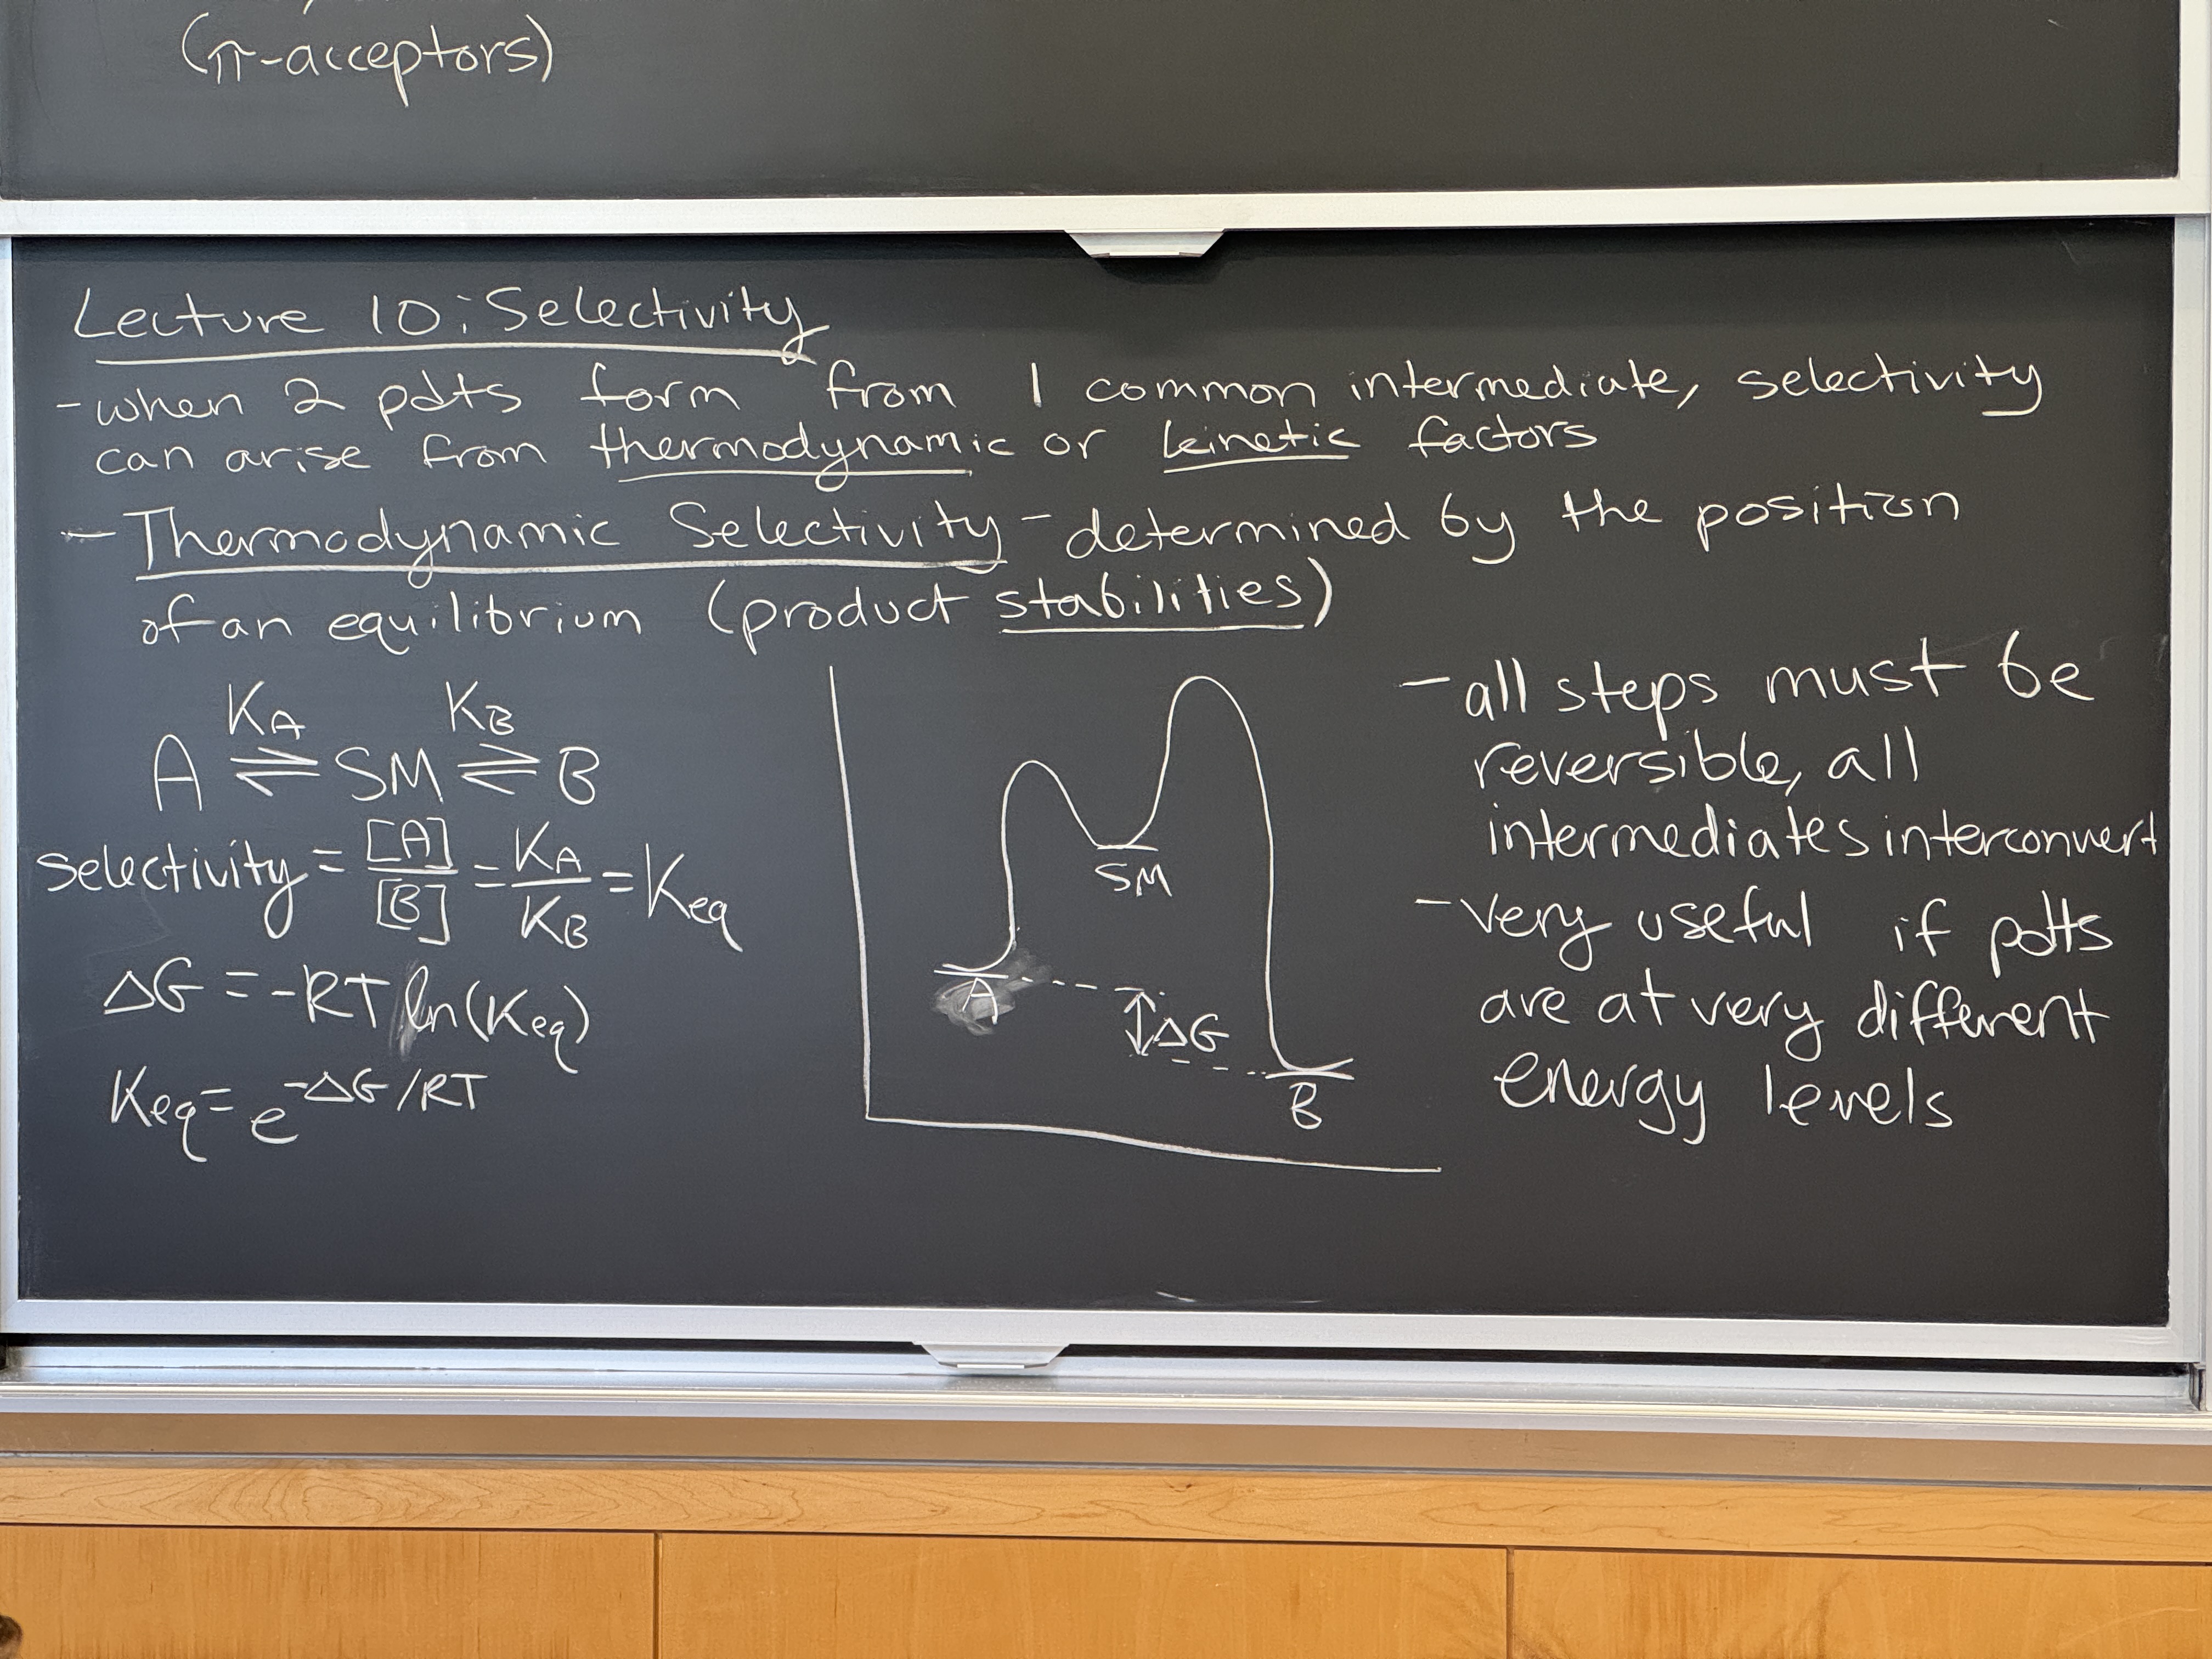 (π-acceptors)
Lecture 10: Selectivity
- when 2 pdts form from 1 common intermediate, selectivity
can arise from thermodynamic or kinetic factors
- Thermodynamic Selectivity - determined by the position
of an equilibrium (product stabilities)
K_A K_B
A ⇌ SM ⇌ B
selectivity = [A]/[B] = K_A/K_B = Keq
ΔG = -RT ln(Keq)
Keq = e^(-ΔG/RT)
SM
A
ΔG
B
- all steps must be
reversible, all
intermediates interconvert
- very useful if pdts
are at very different
energy levels